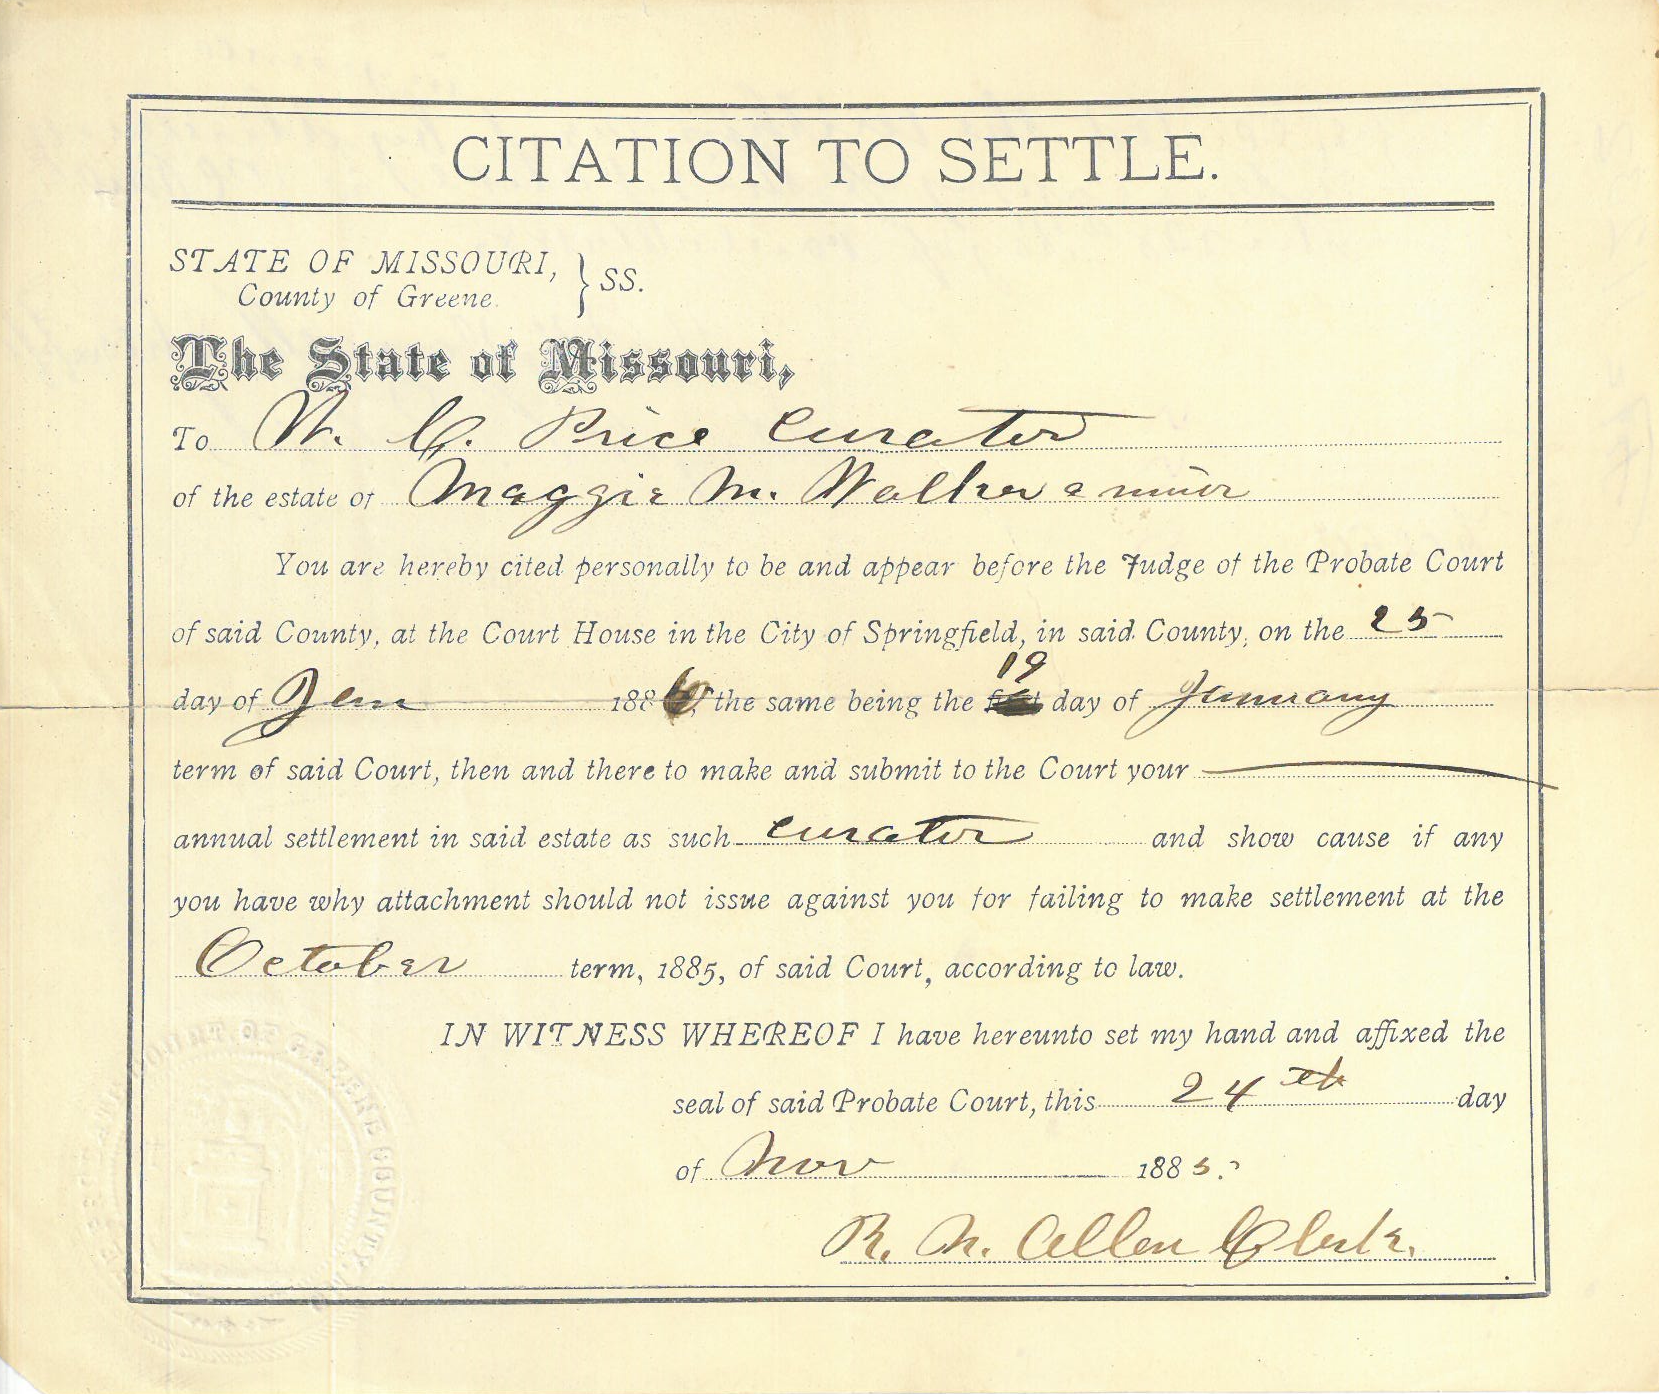 CITATION TO SETTLE.
STATE OF MISSOURI, } SS.
County of Greene.
The State of Missouri,
To W. C. Price Curator
of the estate of Maggie M. Walker a minor
You are hereby cited personally to be and appear before the Judge of the Probate Court
of said County, at the Court House in the City of Springfield, in said County, on the 25
day of Jan 1886, the same being the 19 day of January
term of said Court, then and there to make and submit to the Court your
annual settlement in said estate as such curator and show cause if any
you have why attachment should not issue against you for failing to make settlement at the
October term, 1885, of said Court, according to law.
IN WITNESS WHEREOF I have hereunto set my hand and affixed the
seal of said Probate Court, this 24th day
of Nov 1885.
Allen Clerk.